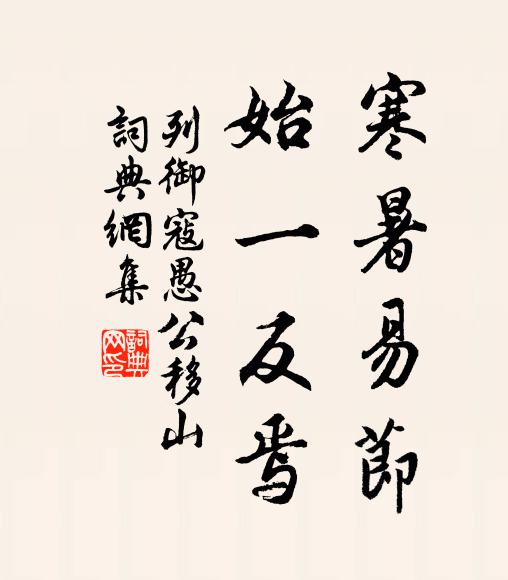 寒暑易節
始一反焉
列御寇愚公移山
詞典網集
詞典網印